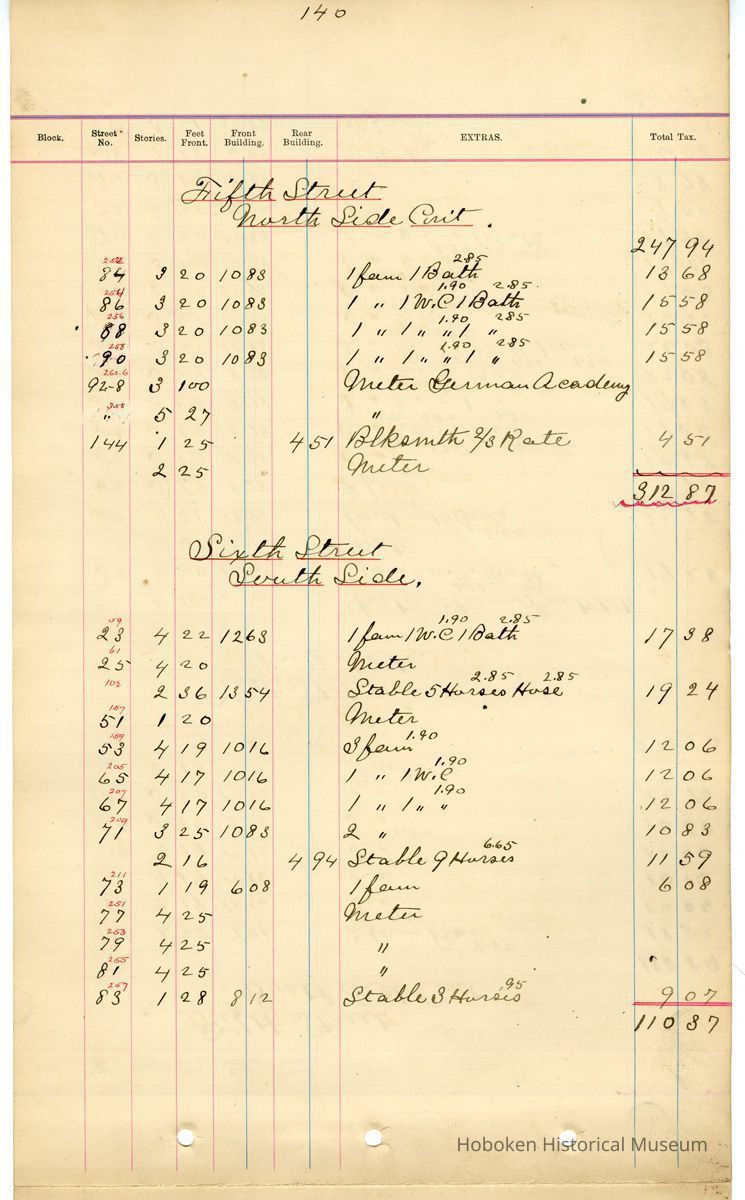 140
Block. Street No. Stories. Feet Front. Front Building. Rear Building. EXTRAS. Total Tax.
Fifth Street
North Side Cont.
247 94
252 2.85
84 3 20 1083 1 fam 1 Bath 13 68
254 1.90 2.85
86 3 20 1083 1 " 1 W.C 1 Bath 15 58
256 1.90 2.85
88 3 20 1083 1 " 1 " " 1 " 15 58
258 1.90 2.85
90 3 20 1083 1 " " " 1 " 15 58
262.6
92-8 3 100 Meter German Academy
358
" 5 27 "
144 1 25 4 51 Blksmith 2/3 Rate 4 51
2 25 Meter
312 87
Sixth Street
South Side.
59 1.90 2.85
23 4 22 1263 1 fam 1 W.C 1 Bath 17 38
61
25 4 20 Meter
102 2.85 2.85
2 36 1354 Stable 5 Horses Hose 19 24
157
51 1 20 Meter
159 1.90
53 4 19 1016 3 fam 12 06
205 1.90
65 4 17 1016 1 " 1 W.C 12 06
207 1.90
67 4 17 1016 1 " 1 " " 12 06
209
71 3 25 1083 2 " 10 83
6.65
2 16 4 94 Stable 9 Horses 11 59
211
73 1 19 608 1 fam 6 08
251
77 4 25 Meter
253
79 4 25 "
255
81 4 25 "
257 .95
83 1 28 812 Stable 3 Horses 9 07
110 37
Hoboken Historical Museum